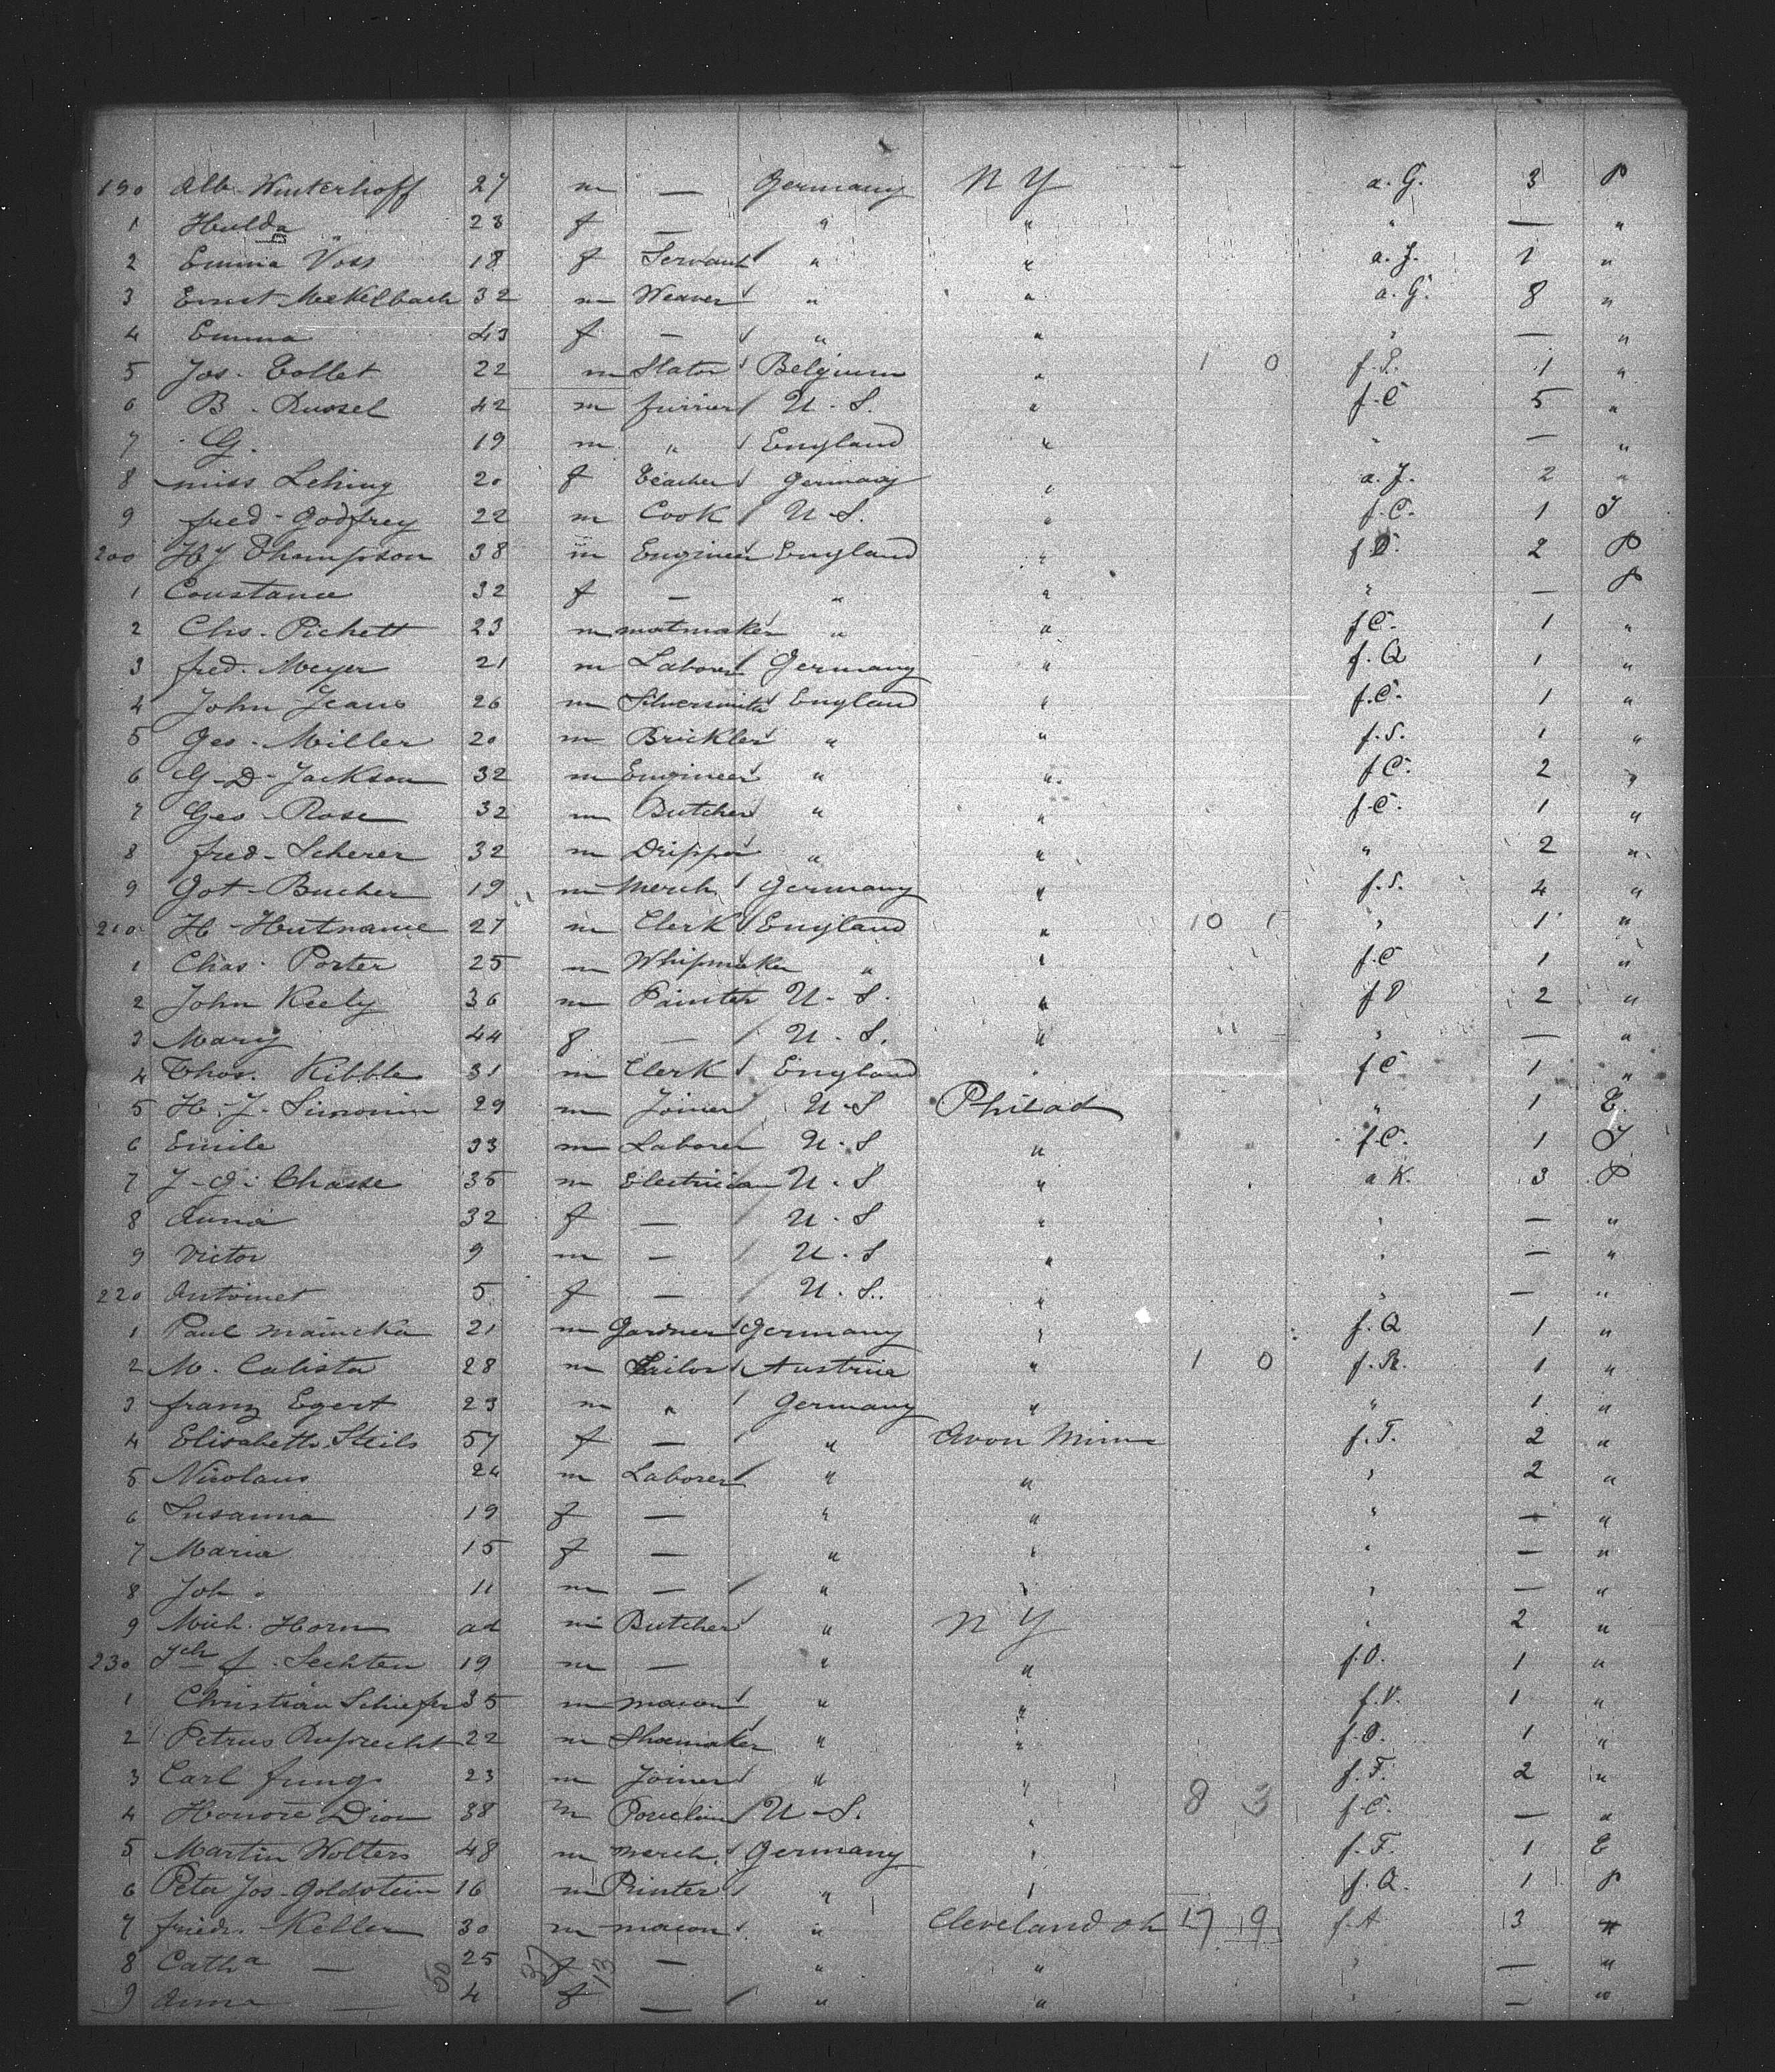 190 Alb. Winterhoff 27 m — Germany N Y a. G. 3 P
1 Hulda " 23 f — " " " — "
2 Emma Voss 18 f Servant " " a. J. 1 "
3 Ernst Mekelbach 32 m Weaver " " a. G. 8 "
4 Emma 43 f — " " " — "
5 Jos. Collet 22 m Slator Belgium " 1 0 f. R. 1 "
6 B. Russel 42 m furrier U. S. " f. C 5 "
7 G. 19 m " England " " — "
8 miss Lehing 20 f Teacher Germany " a. J. 2 "
9 fred. Godfrey 22 m Cook U. S. " f. C. 1 I
200 Hy Thompson 38 m Engineer England " f. 2 P
1 Constance 32 f — " " " — P
2 Chs. Pichett 23 m matmaker " " f C. 1 "
3 fred. Meyer 21 m Laborer Germany " f. Q 1 "
4 John Jeans 26 m Silversmith England " f. C. 1 "
5 Geo. Miller 20 m Brickler " " f. S. 1 "
6 G. D. Jackson 32 m Engineer " " f C. 2 "
7 Geo. Rose 32 m Butcher " " f. C. 1 "
8 fred. Scherer 32 m Dripper " " " 2 "
9 Got. Bucher 19 m Merch. Germany " f. S. 4 "
210 H. Hutname 27 m Clerk England " 10 1 " 1 "
1 Chas. Porter 25 m Whipmaker " " f. C 1 "
2 John Keely 36 m Painter U. S. " f D 2 "
3 Mary 44 f — U. S. " " — "
4 Thos. Kibble 31 m Clerk England " f C 1 "
5 H. J. Simonin 29 m Joiner U. S Philad " 1 E.
6 Emile 33 m Laborer U. S " f. C. 1 I
7 J. G. Chasse 35 m Electrician U. S " a K. 3 P
8 Anna 32 f — U. S " " — "
9 Victor 9 m — U. S " " — "
220 Antoinet 5 f — U. S. " " — "
1 Paul Maincka 21 m Gardner Germany " f. Q 1 "
2 M. Calista 28 m Tailor Austria " 1 0 f. R. 1 "
3 franz Egert 23 m " Germany " " 1 "
4 Elisabeth Steils 57 f — " Avon Minn f. T. 2 "
5 Nicolaus 24 m Laborer " " " 2 "
6 Susanna 19 f — " " " — "
7 Maria 15 f — " " " — "
8 Joh. 11 m — " " " — "
9 Mich. Horn ad m Butcher " N Y " 2 "
230 Joh f. Sechten 19 m — " " f. O. 1 "
1 Christian Schiefer 35 m mason " " f. V. 1 "
2 Petrus Ruprecht 22 m Shoemaker " " f. O. 1 "
3 Carl Jung 23 m Joiner " " f. T. 2 "
4 Honoré Dion 38 m Porcelain U. S. " 8 3 f. C. — "
5 Martin Wolters 48 m merch. Germany " f. T. 1 E
6 Peter Jos. Goldstein 16 m Printer " " f. Q. 1 P
7 friedr. Keller 30 m mason " Cleveland Oh 17 9 f. A 3 "
8 Catha — 25 f — " " " — "
9 Anna — 4 f — " " " — "
50 37 13